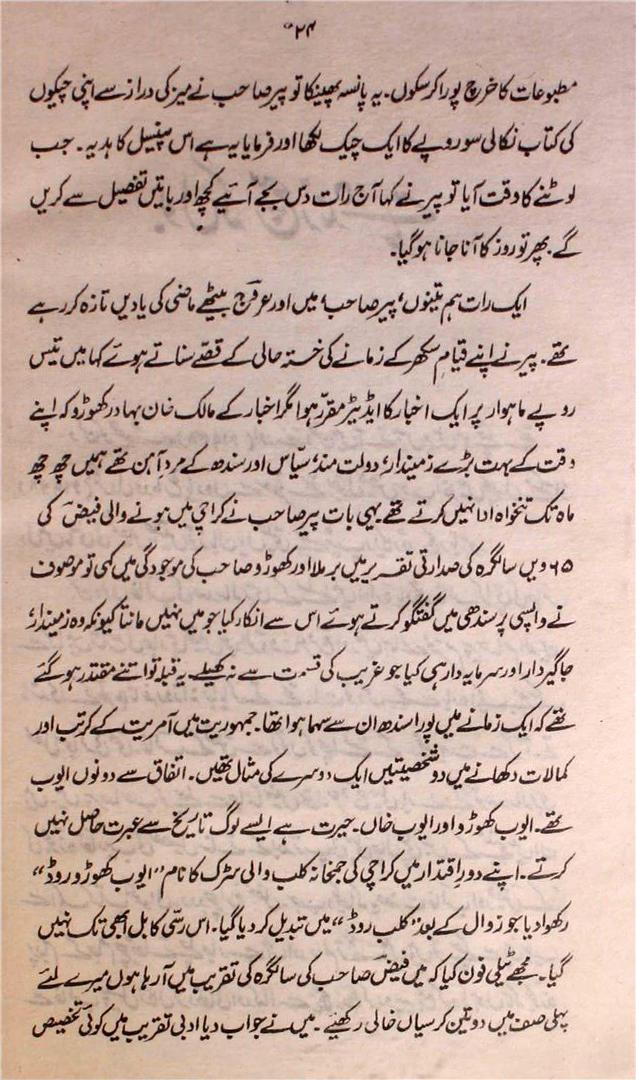 ۲۴
مطبوعات کا خرچ پورا کر سکوں۔ یہ پانسہ پھینکا تو پیر صاحب نے میز کی دراز سے اپنی چیکوں
کی کتاب نکالی سو روپے کا ایک چیک لکھا اور فرمایا یہ ہے اس پنسیل کا ہدیہ۔ جب
لوٹنے کا وقت آیا تو پیر نے کہا آج رات دس بجے آئیے کچھ اور باتیں تفصیل سے کریں
گے۔ پھر تو روز کا آنا جانا ہو گیا۔
ایک رات ہم تینوں، پیر صاحب، میں اور عرفؔج بیٹھے ماضی کی یادیں تازہ کر رہے
تھے۔ پیر نے اپنے قیامِ سکھر کے زمانے کی خستہ حالی کے قصّے سناتے ہوئے کہا میں تیس
روپے ماہوار پر ایک اخبار کا ایڈیٹر مقرّر ہوا مگر اخبار کے مالک خان بہادر کھوڑو کہ اپنے
وقت کے بہت بڑے زمیندار، دولت مند، سیّاس اور سندھ کے مردِ آہن تھے ہمیں چھ چھ
ماہ تک تنخواہ ادا نہیں کرتے تھے۔ یہی بات پیر صاحب نے کراچی میں ہونے والی فیضؔ کی
۶۵ ویں سالگرہ کی صدارتی تقریر میں برملا اور کھوڑو صاحب کی موجودگی میں کہی تو موصوف
نے واپسی پر سندھی میں گفتگو کرتے ہوئے اس سے انکار کیا جو میں نہیں مانتا کیونکہ وہ زمیندار،
جاگیردار اور سرمایہ دار ہی کیا جو غریب کی قسمت سے نہ کھیلے۔ یہ قبلہ تو اتنے مقتدر ہو گئے
تھے کہ ایک زمانے میں پورا سندھ ان سے سہما ہوا تھا۔ جمہوریت میں آمریت کے کرتب اور
کمالات دکھانے میں دو شخصیتیں ایک دوسرے کی مثال تھیں۔ اتفاق سے دونوں ایوب
تھے۔ ایوب کھوڑو اور ایوب خاں۔ حیرت ہے ایسے لوگ تاریخ سے عبرت حاصل نہیں
کرتے۔ اپنے دورِ اقتدار میں کراچی کی جمخانہ کلب والی سڑک کا نام ”ایوب کھوڑو روڈ“
رکھوا دیا جو زوال کے بعد ”کلب روڈ“ میں تبدیل کر دیا گیا۔ اس رسّی کا بل ابھی تک نہیں
گیا۔ مجھے ٹیلی فون کیا کہ میں فیضؔ صاحب کی سالگرہ کی تقریب میں آ رہا ہوں میرے لئے
پہلی صف میں دو تین کرسیاں خالی رکھیئے۔ میں نے جواب دیا ادبی تقریب میں کوئی تخصیص